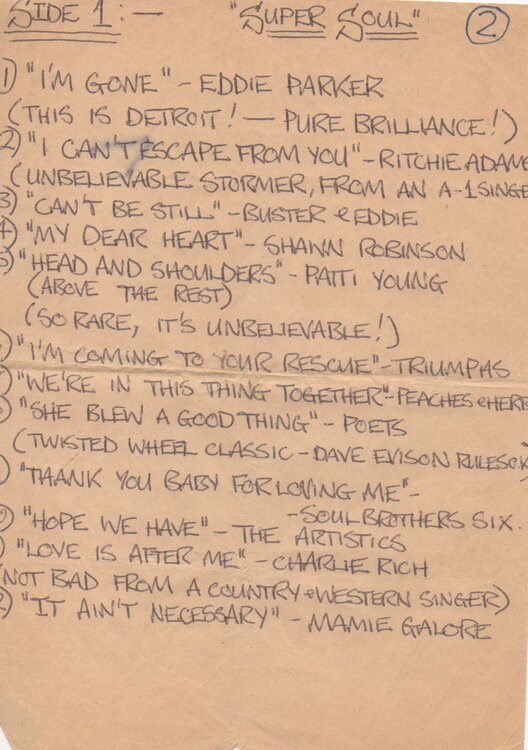 SIDE 1:— "SUPER SOUL" 2
1) "I'M GONE" - EDDIE PARKER
(THIS IS DETROIT! — PURE BRILLIANCE!)
2) "I CAN'T ESCAPE FROM YOU" - RITCHIE ADAMS
(UNBELIEVABLE STORMER, FROM AN A-1 SINGE
3) "CAN'T BE STILL" - BUSTER & EDDIE
4) "MY DEAR HEART" - SHAWN ROBINSON
5) "HEAD AND SHOULDERS" - PATTI YOUNG
(ABOVE THE REST)
(SO RARE, IT'S UNBELIEVABLE!)
) "I'M COMING TO YOUR RESCUE" - TRIUMPAS
) "WE'RE IN THIS THING TOGETHER" - PEACHES & HERB
) "SHE BLEW A GOOD THING" - POETS
(TWISTED WHEEL CLASSIC - DAVE EVISON RULES OK)
) "THANK YOU BABY FOR LOVING ME" -
- SOUL BROTHERS SIX.
) "HOPE WE HAVE" - THE ARTISTICS
) "LOVE IS AFTER ME" - CHARLIE RICH
(NOT BAD FROM A COUNTRY & WESTERN SINGER)
) "IT AIN'T NECESSARY" - MAMIE GALORE